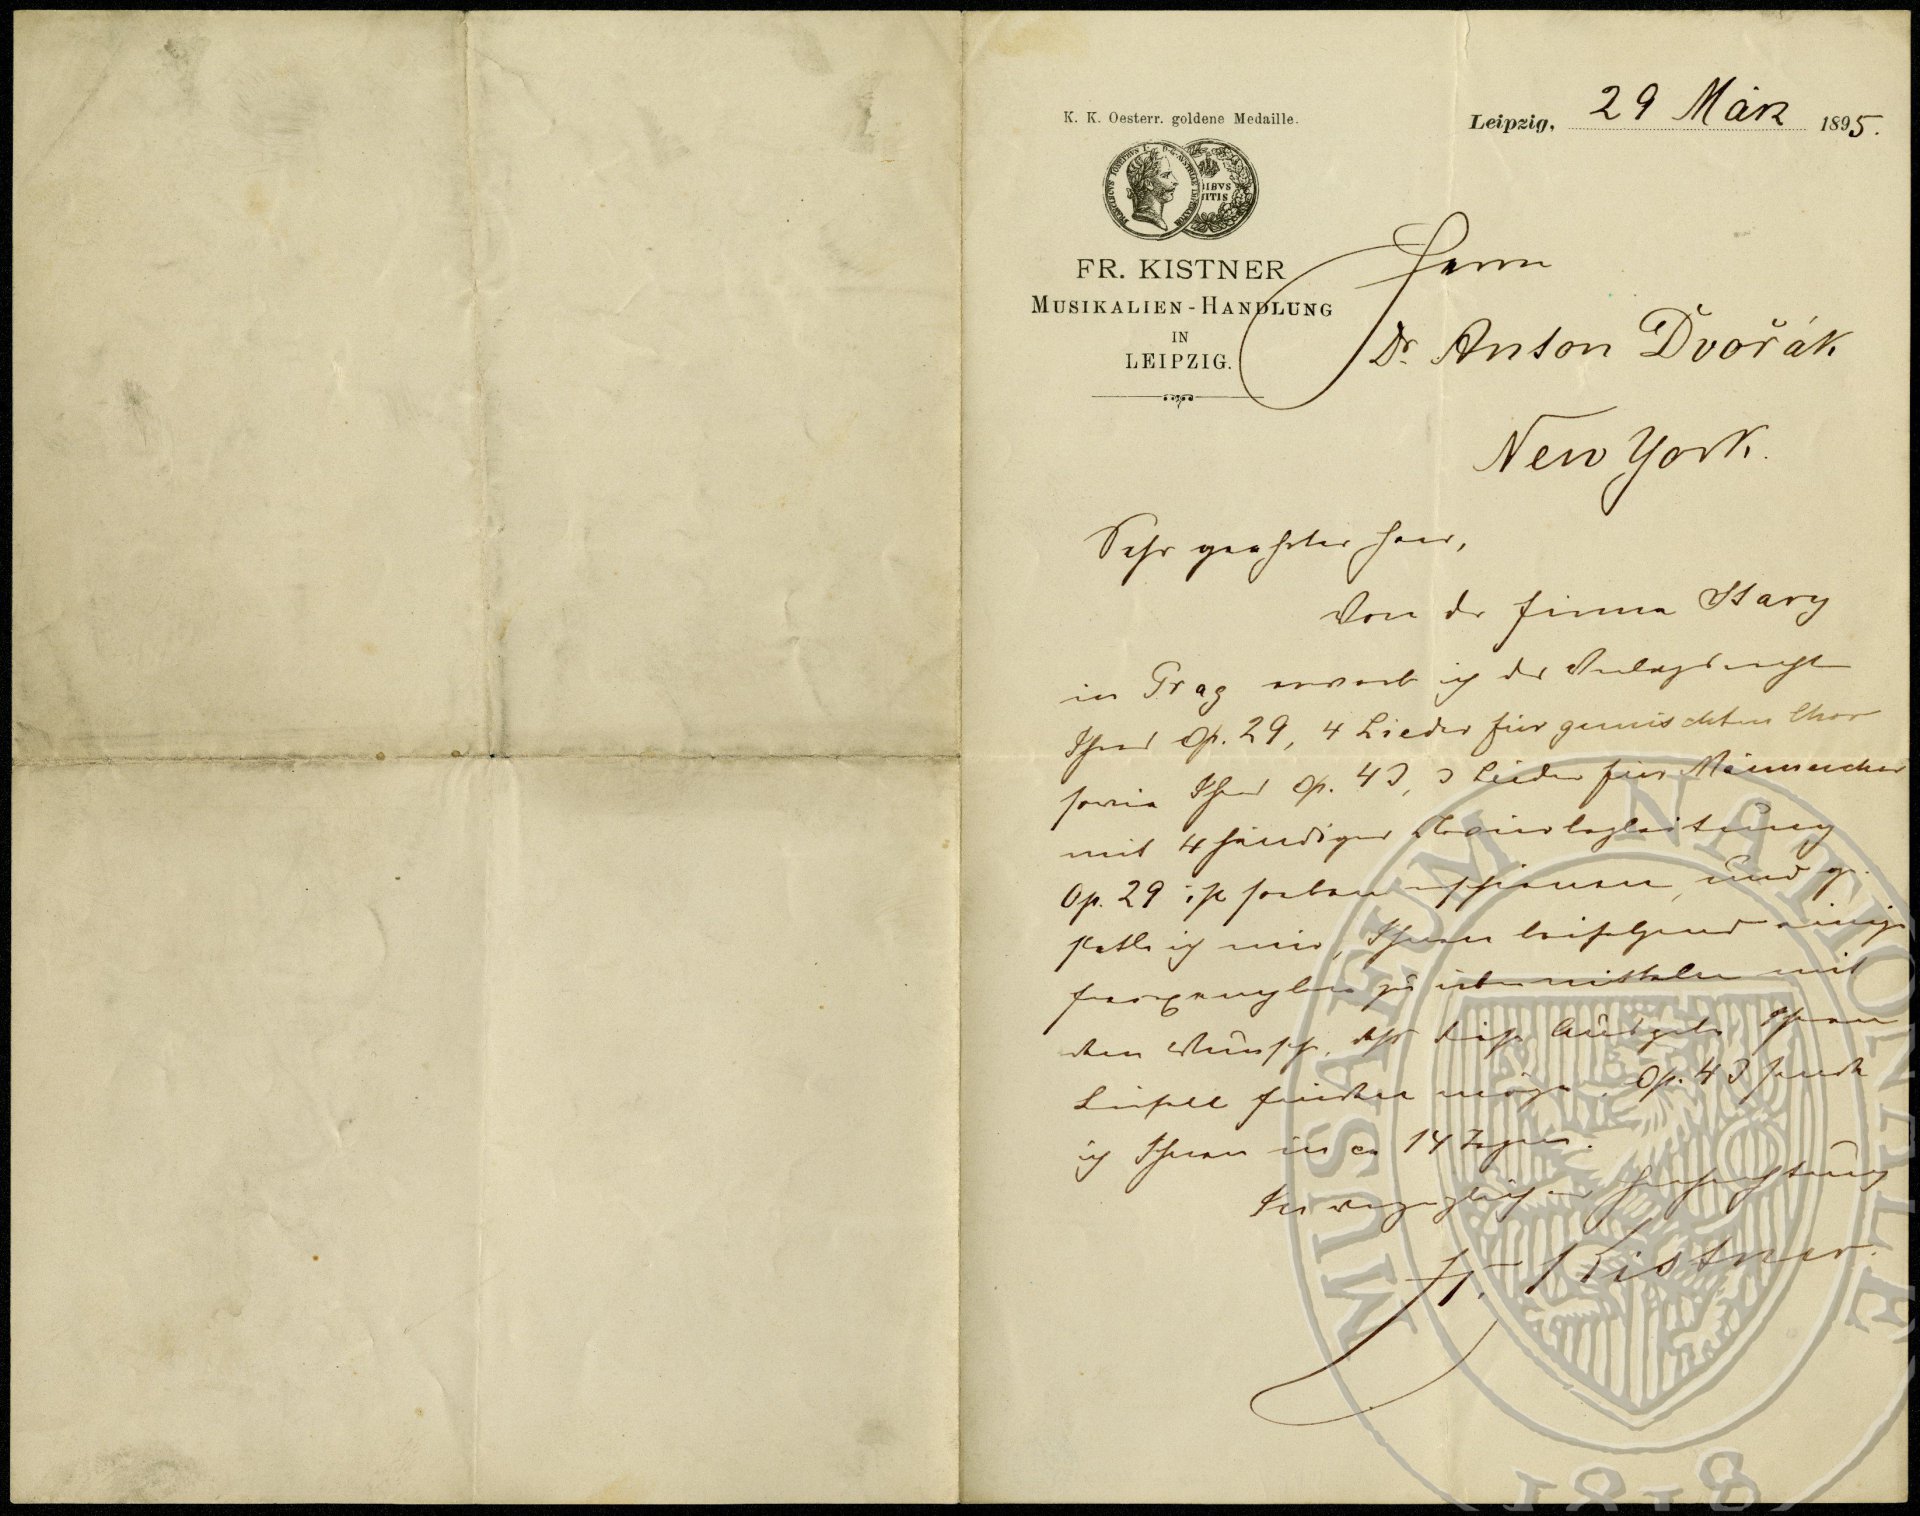 K. K. Oesterr. goldene Medaille.
Leipzig, 29 März 1895.
FR. KISTNER
MUSIKALIEN-HANDLUNG
IN
LEIPZIG.
Herrn
Dr. Anton Dvořák
New York.
Sehr geehrter Herr,
Von der Firma Stary
in Prag erwarb ich das Verlagsrecht
Ihres Op. 29, 4 Lieder für gemischten Chor
sowie Ihres Op. 43, 3 Lieder für Männerchor
mit 4 händiger Clavierbegleitung
Op. 29 ist soeben erschienen, und ge-
statte ich mir, Ihnen beifolgend einige
Freiexemplare zu übermitteln mit
dem Wunsch, dass diese Ausgabe Ihren
Beifall finden möge. Op. 43 sende
ich Ihnen in ca 14 Tagen.
In vorzüglicher Hochachtung
Fr. Kistner.
MUSAEUM NATIONALE
1818